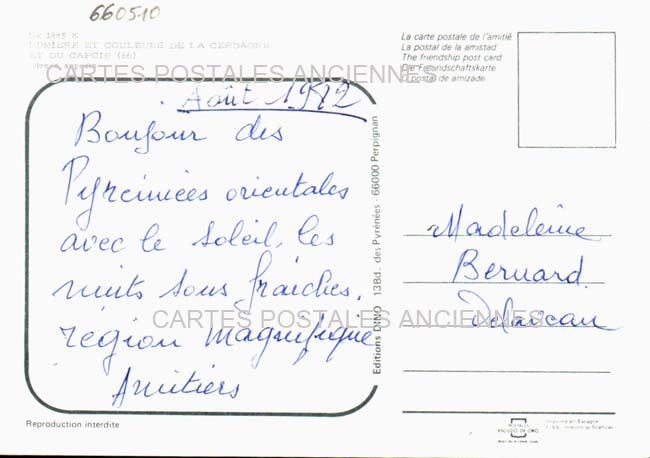 660510
LUMIERE ET COULEURS DE LA CERDAGNE
ET DU CAPCIR (66)
CARTES POSTALES ANCIENNES
Août 1982
Bonjour des
Pyreinées orientales
avec le soleil, les
nuits sous fraiches.
région magnifique
Amitiers
Reproduction interdite
Editions DINO 13Bd. des Pyrénées - 66000 Perpignan
La carte postale de l'amitié
La postal de la amistad
The friendship post card
Die Freundschaftskarte
O postal de amizade
Madeleine
Bernard
CARTES POSTALES ANCIENNES
POSTALES
ESCUDO DE ORO